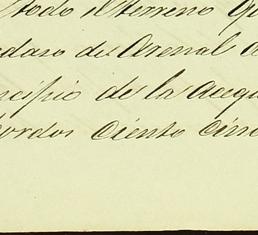 todo el terreno qu
edaso de Arenal a
ncipio de la Acequ
ordos Ciento Cinc